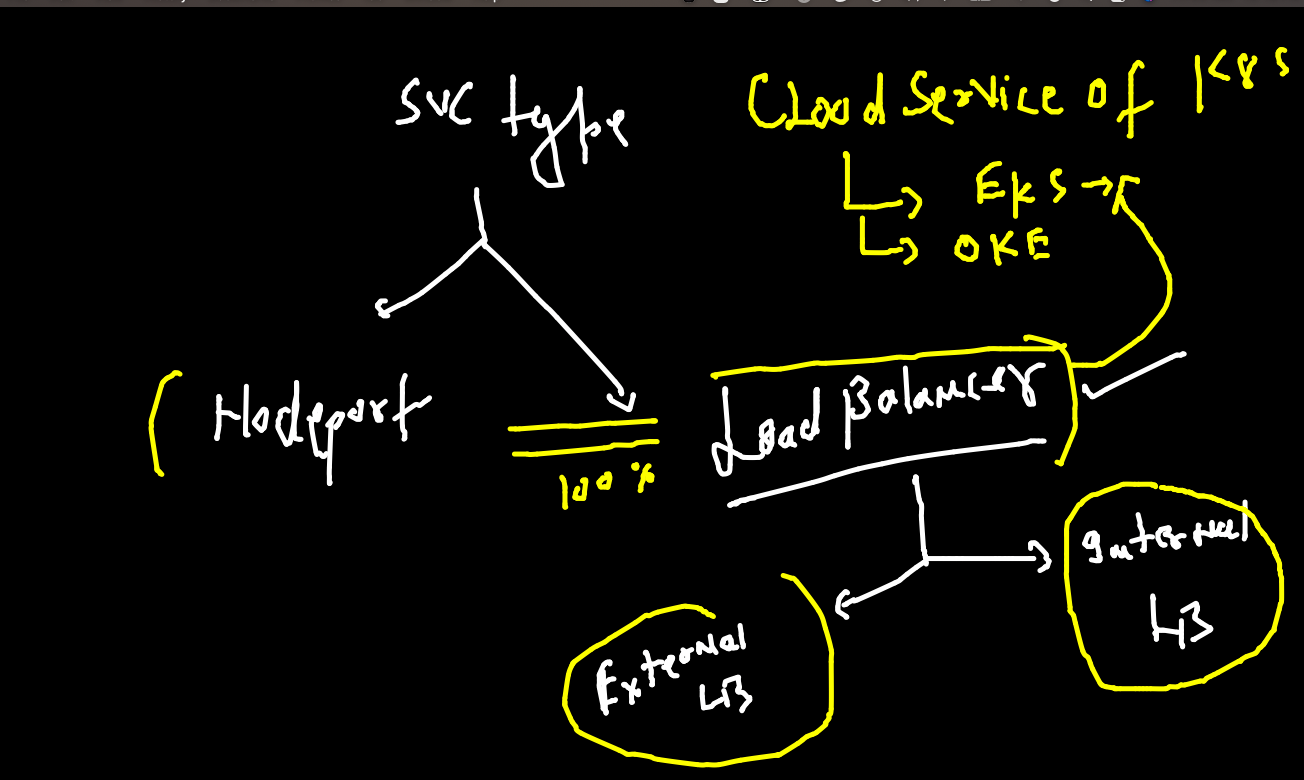 SVC type
Cloud Service of K8S
EKS
OKE
Nodeport
Load Balancer
100%
Internal
LB
External
LB